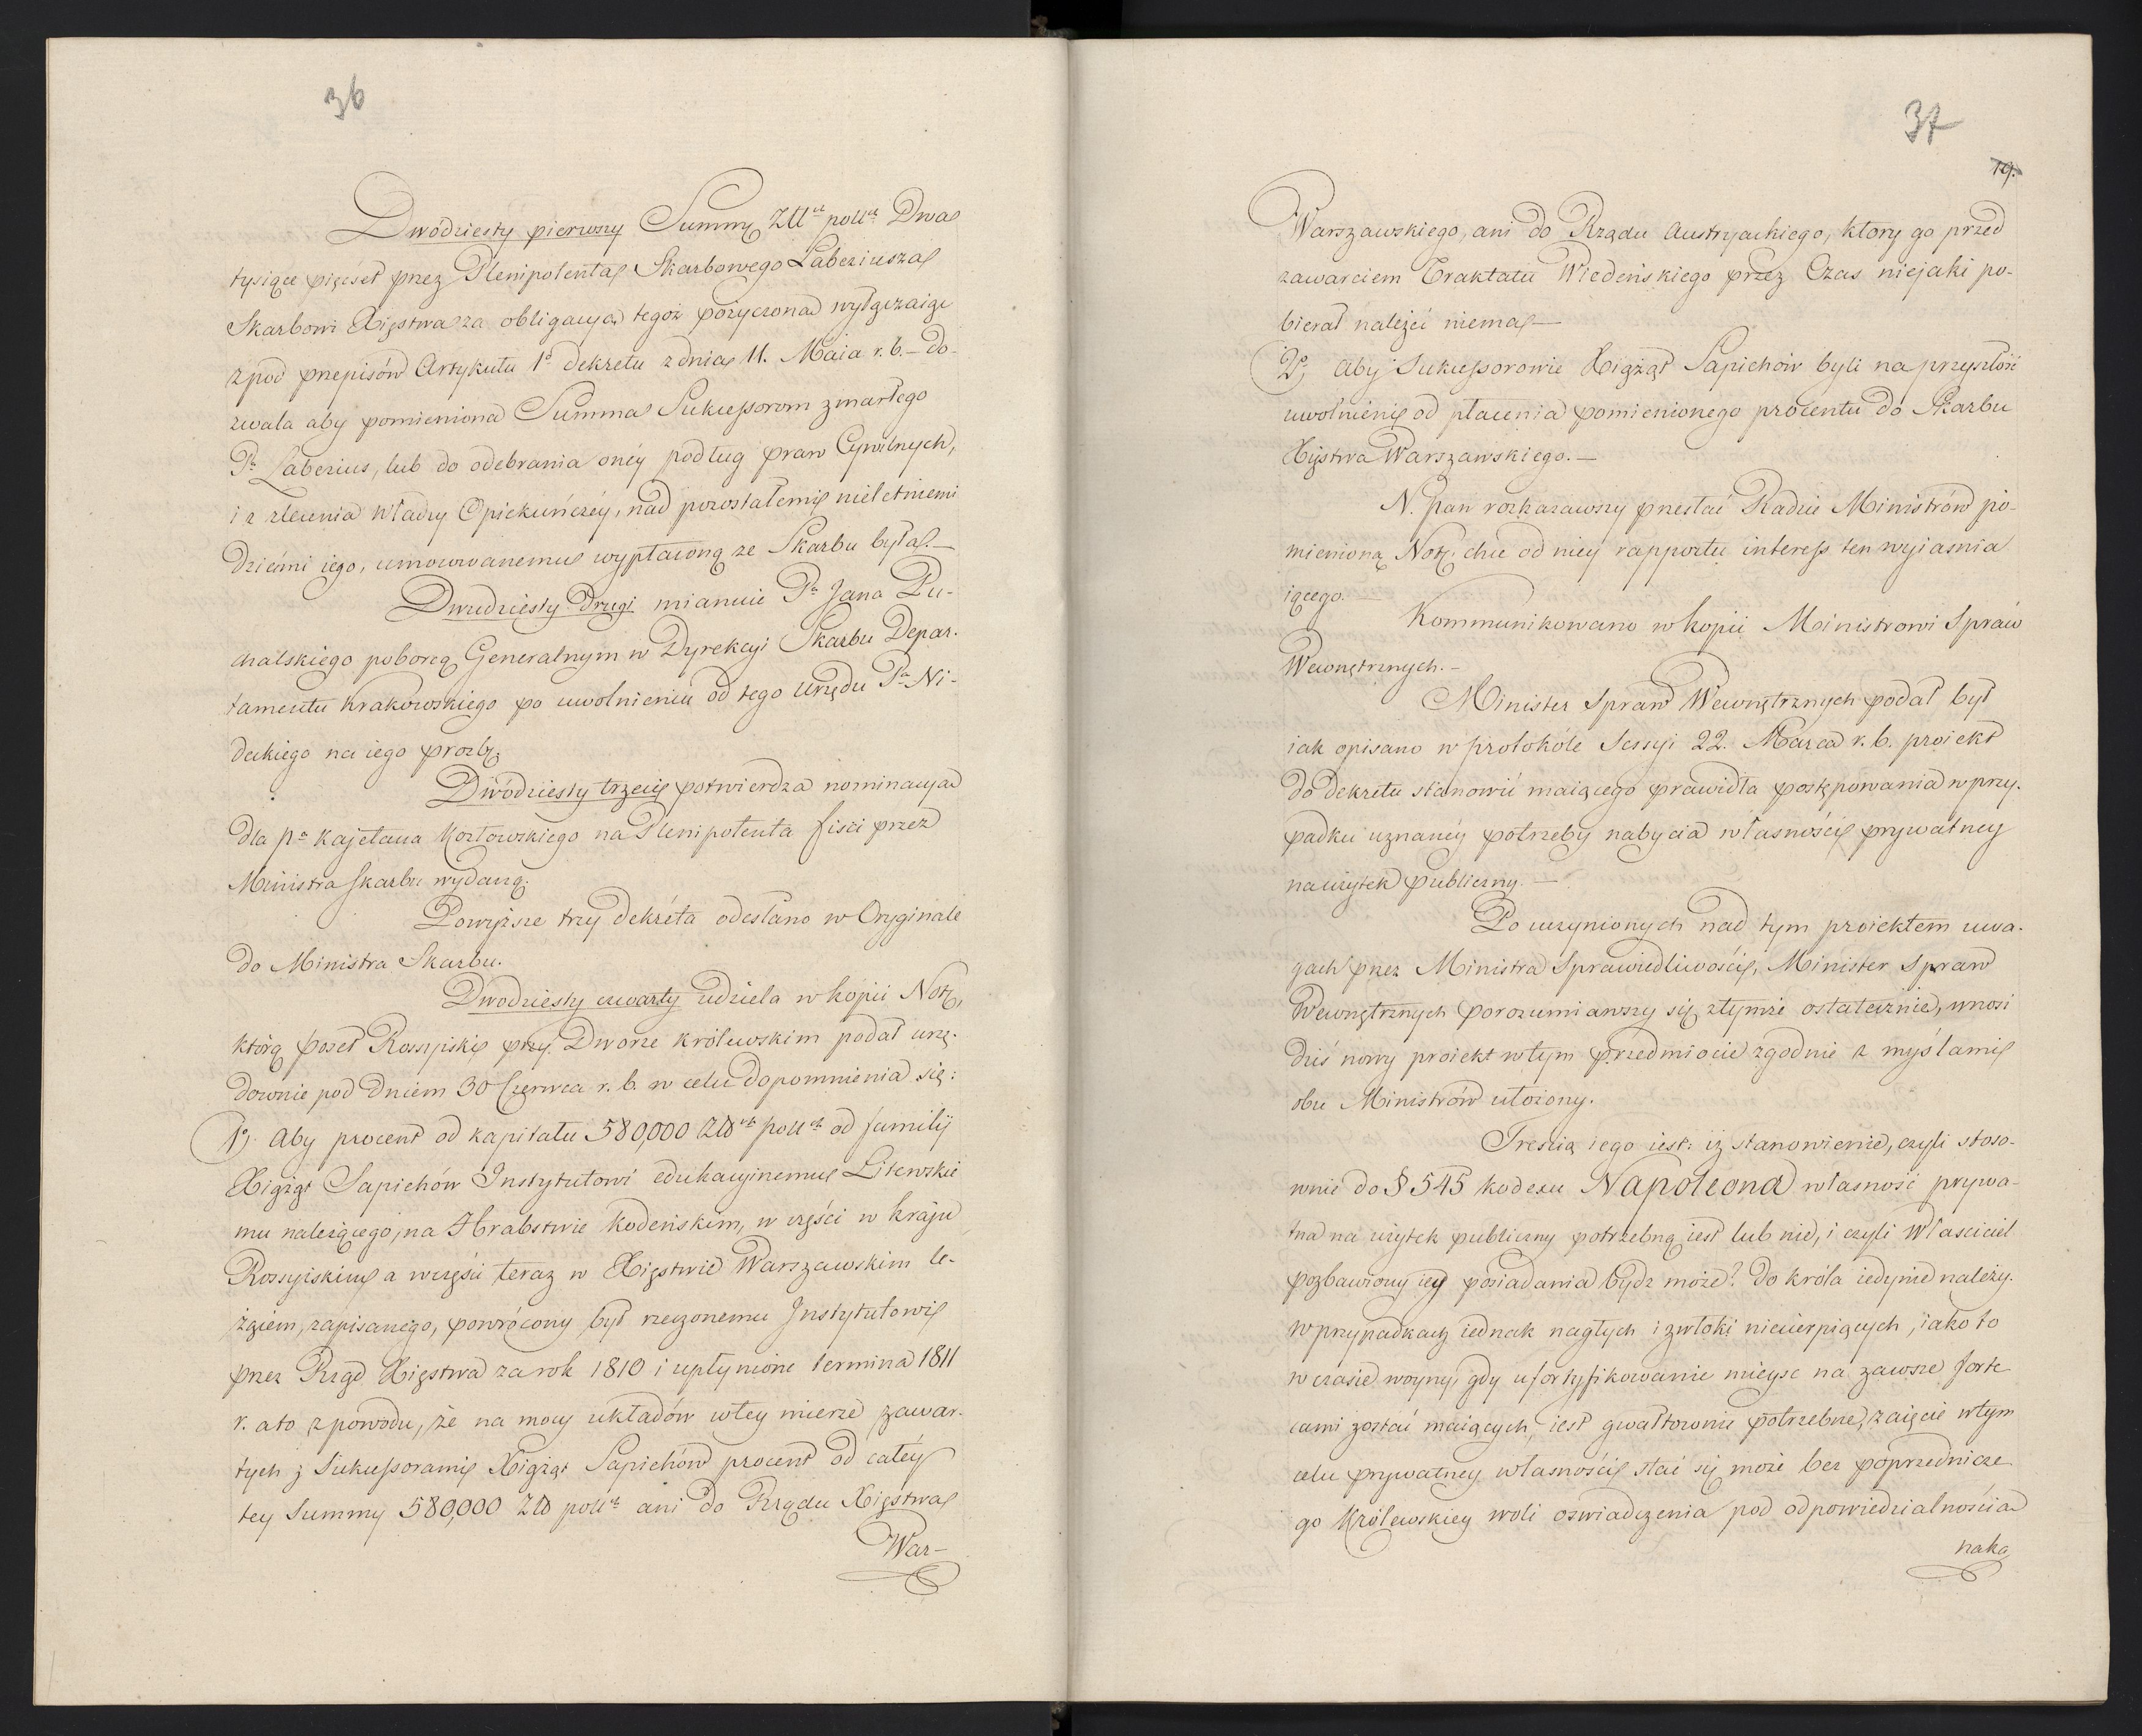 36
Dwódziesty pierwszy Summę Złł. poll. Dwa
tysiące pięćset przez Plenipotenta Skarbowego Laberiusza
Skarbowi Xięstwa za obligacyą tegoż pożyczoną wyłączaiąc
zpod przepisów Artykułu 1º dekretu z dnia 11. Maia r. b. – do-
zwala aby pomieniona Summa Sukcessorom zmarłego
Pª Laberius, lub do odebrania oney podług praw Cywilnych,
i z zlecenia Władzy Opiekuńczéy, nad pozostałemi nieletniemi
dziećmi iego, umocowanemu wypłaconą ze Skarbu była. —
Dwudziesty Drugi mianuie Pª Jana Pu-
chalskiego poborcą Generalnym w Dyrekcyi Skarbu Depar-
tamentu Krakowskiego po uwolnieniu od tego urzędu Pª Ni-
deckiego na iego prozbę.
Dwódziesty trzeci potwierdza nominacyą
dla pª Kajetana Kozłowskiego na Plenipotenta fisci przez
Ministra Skarbu wydaną.
Powyższe trzy dekréta odesłano w Oryginale
do Ministra Skarbu.
Dwodziesty czwarty udziela w kopii Notę,
którą poseł Rossyiski przy Dworze królewskim podał urzę-
downie pod dniem 30 Czerwca r. b. w celu dopomnienia się:
1º, Aby procent od kapitału 580,000 Złł. poll. od familij
Xiążąt Sapiehów Instytutowi edukacyinemu Litewskie
mu należącego, na Hrabstwie Kodeńskim, w części w kraju
Rossyiskim a w części teraz w Xięstwie Warszawskim le-
żącém, zapisanego, powrócony był rzeczonemu Instytutowi
przez Rząd Xięstwa za rok 1810 i upłynione termina 1811
r. a to z powodu, że na mocy układów w tey mierze zawar-
tych z Sukcessorami Xiążąt Sapiehów procent od całéy
tey Summy 580,000 Zł. poll. ani do Rządu Xięstwa
War-
37
19.
Warszawskiego, ani do Rządu Austryackiego, ktory go przed
zawarciem Traktatu Wiedeńskiego przez Czas niejaki po-
bierał należeć niema —
2º, Aby Sukcessorowie Xiążąt Sapiehów byli na przyszłość
uwolnieni od płacenia pomienionego procentu do Skarbu
Xięstwa Warszawskiego. —
N. Pan rozkazawszy przesłać Radzie Ministrów po-
mienioną Notę, chce od niey rapportu interess ten wyiasnia
iącego. —
Kommunikowano w kopii Ministrowi Spraw
Wewnętrznych. –
Minister Spraw Wewnętrznych podał był
iak opisano w protokóle Sessyi 22. Marca r. b. proiekt
do dekretu stanowić maiącego prawidła postępowania w przy-
padku uznanéy potrzeby nabycia własności prywatney
na użytek publiczny. —
Po uczynionych nad tym proiektem uwa-
gach przez Ministra Sprawiedliwości, Minister Spraw
Wewnętrznych porozumiawszy się z tymże ostatecznie, wnosi
dziś nowy proiekt w tym przedmiocie zgodnie z myślami
obu Ministrów ułożony.
Treścią iego iest: iż stanowienie, czyli stoso-
wnie do § 545 kodexu Napoleona własność prywa-
tna na użytek publiczny potrzebną iest lub nie, i czyli Właściciel
pozbawiony iey posiadania bydz może? do króla iedynie należy.
w przypadkach iednak nagłych i zwłoki niecierpiących, iako to
w czasie woyny, gdy ufortyfikowanie mieysc na zawsze forte
cami zostać maiących, iest gwałtownie potrzebne, zaięcie w tym
celu prywatney własności stać się może bez poprzednicze
go Królewskiey woli oswiadczenia pod odpowiedzialnością
naka